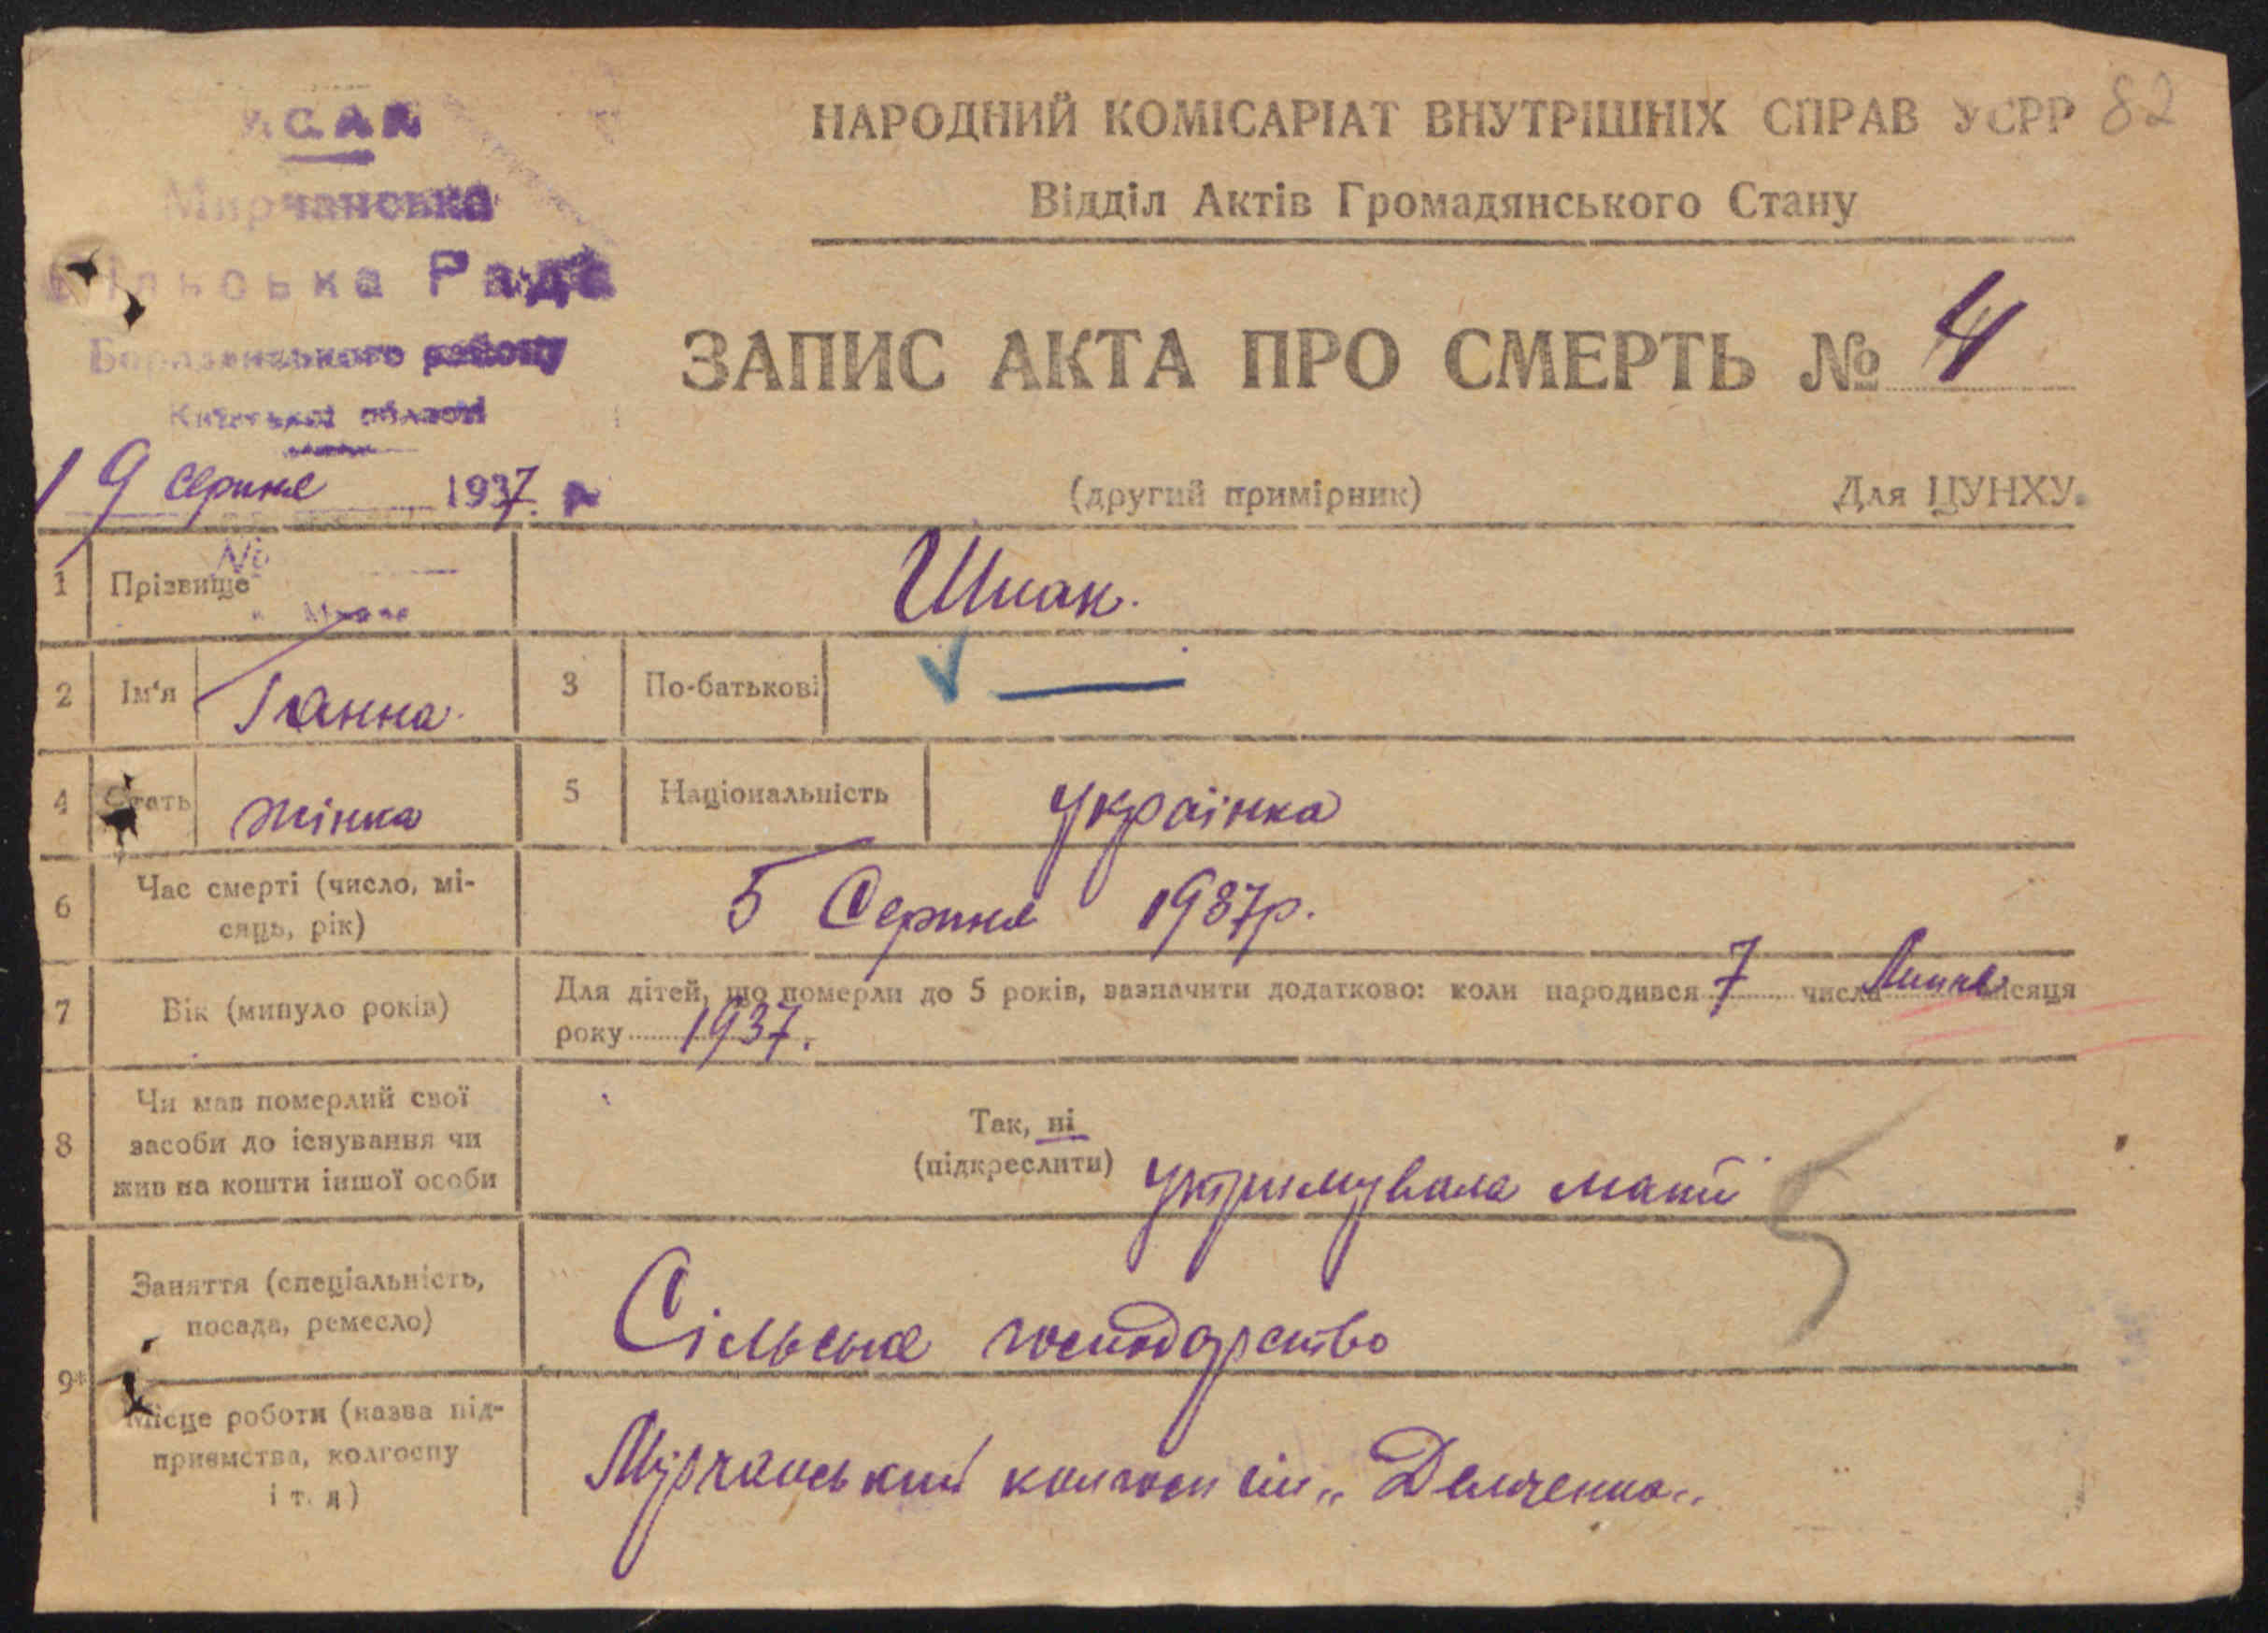 УСРР
Мирчанська
Сільська Рада
Бородянського району
Київської області
НАРОДНИЙ КОМІСАРІАТ ВНУТРІШНІХ СПРАВ УСРР 82
Відділ Актів Громадянського Стану
ЗАПИС АКТА ПРО СМЕРТЬ № 4
19 серпня 1937 р
(другий примірник) Для ЦУНХУ.
№
1 Прізвище Шпак.
2 Ім'я Ганна. 3 По-батькові —
4 Стать жінка 5 Національність українка
6 Час смерті (число, мі-
сяць, рік) 5 Серпня 1937р.
7 Вік (минуло років) Для дітей, що померли до 5 років, зазначити додатково: коли народився 7 числа Липня місяця
року 1937.
8 Чи мав померлий свої
засоби до існування чи
жив на кошти іншої особи
Так, ні
(підкреслити) утримувала мати
5
9* Заняття (спеціальність,
посада, ремесло) Сільське господарство
Місце роботи (назва під-
приємства, колгоспу
і т. д) Мурчанський колгосп ім „Демченко"